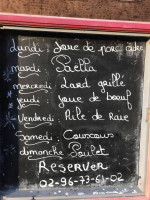 lundi : Joue de porc cidre
mardi : Paella
mercredi : Lard grillé
jeudi : Joue de boeuf
Vendredi : Aile de Raie
Samedi : Couscous
dimanche Poulet
RESERVER
02-96-73-61-02